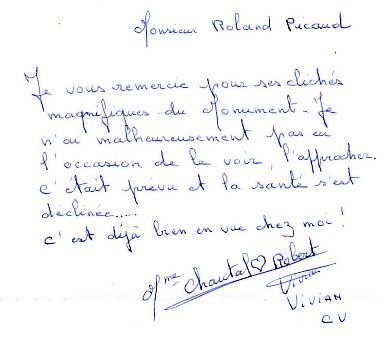 Monsieur Roland Picaud
Je vous remercie pour ses clichés
magnifiques du Monument - Je
n'ai malheureusement pas eu
l'occasion de le voir, l'approcher.
c'était prévu et la santé s'est
déclinée.....
c'est déjà bien en vue chez moi !
Mme Chantal ♡ Robert
Vivian
VIVIAN
CV